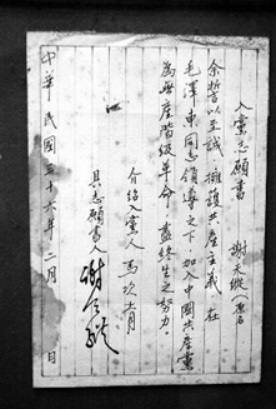 入黨志願書 謝天縱(原名
余誓以至誠,擁護共產主義,在
毛澤東同志領導之下,加入中國共產黨
為無產階級革命,盡終生之努力。
介紹入黨人 馬次青
具志願書人 謝天縱
中華民國三十六年二月 日